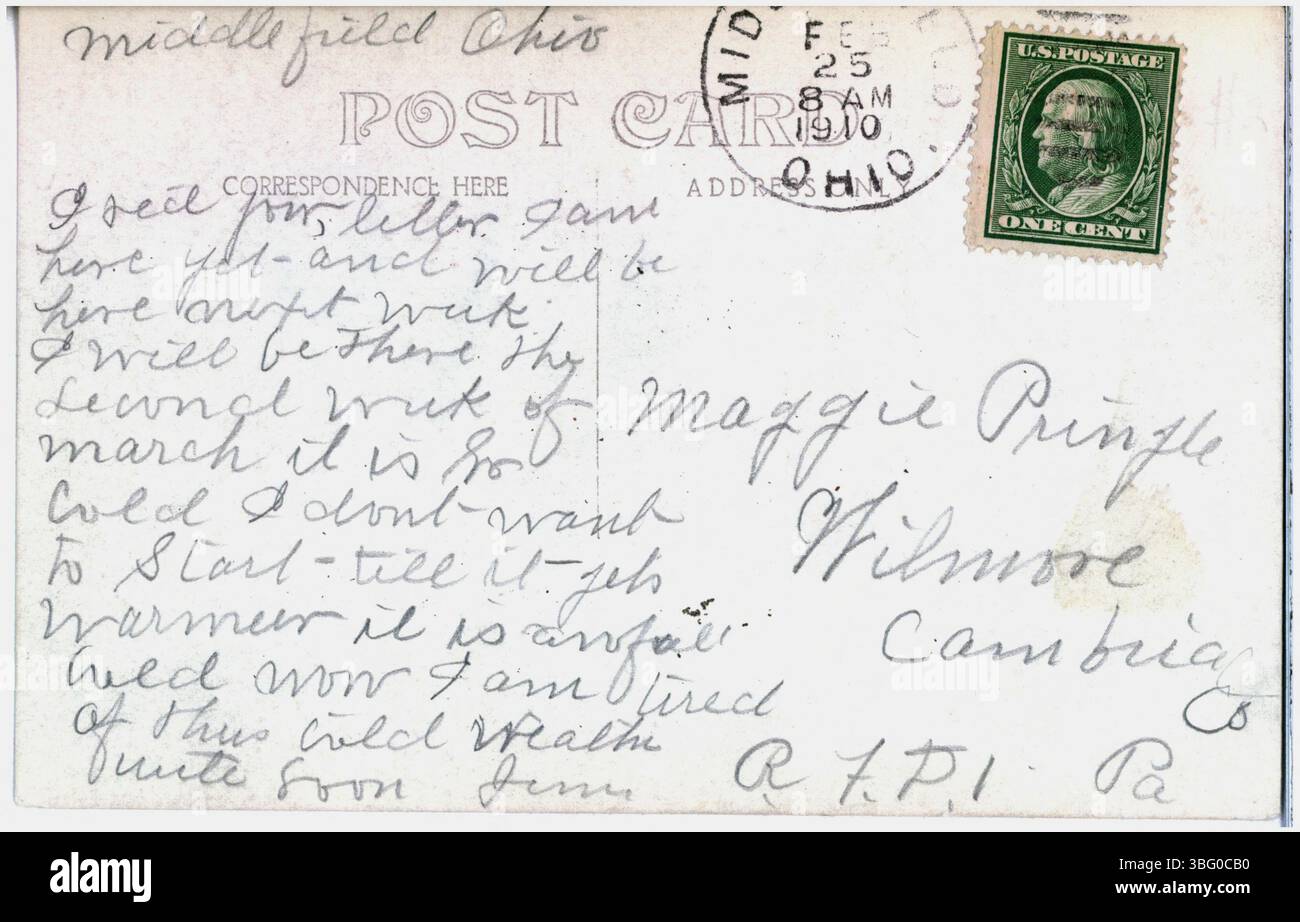 Middlefield Ohio
MIDDLEFIELD
FEB
25
8 AM
1910
OHIO.
U.S. POSTAGE
ONE CENT
POST CARD
CORRESPONDENCE HERE
ADDRESS ONLY
I recd your letter I am
here yet and will be
here next week
I will be there the
second week of
march it is so
cold I dont want
to start till it gets
warmer it is awfall
cold now I am tired
of thus cold weathe
write soon
Maggie Pringle
Wilmore
Cambria
Co
R. F. D. 1 Pa
alamy
Image ID: 3BG0CB0
www.alamy.com